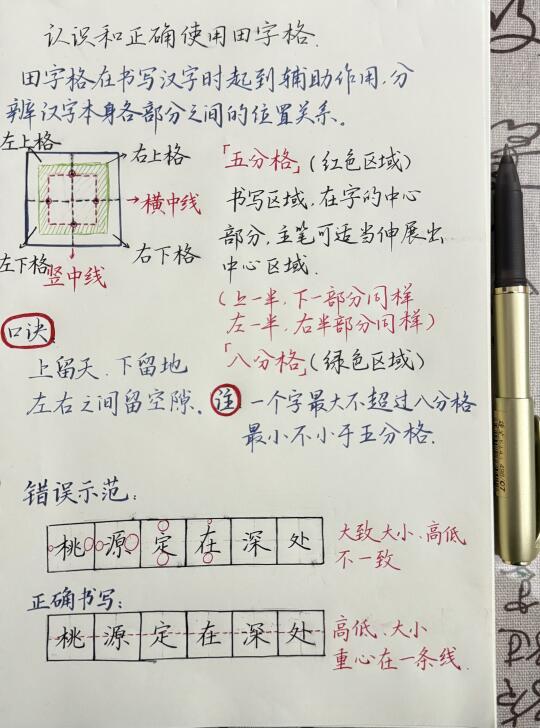 认识和正确使用田字格.
田字格在书写汉字时起到辅助作用,分
辨汉字本身各部分之间的位置关系。
左上格
右上格
横中线
左下格
竖中线
右下格
「五分格」(红色区域)
书写区域,在字的中心
部分,主笔可适当伸展出
中心区域.
(上一半,下一部分同样
左一半,右半部分同样)
口诀
上留天、下留地
左右之间留空隙。
「八分格」(绿色区域)
注 一个字最大不超过八分格
最小不小于五分格.
错误示范:
桃源定在深处
大致大小、高低
不一致
正确书写:
桃源定在深处
高低、大小
重心在一条线.